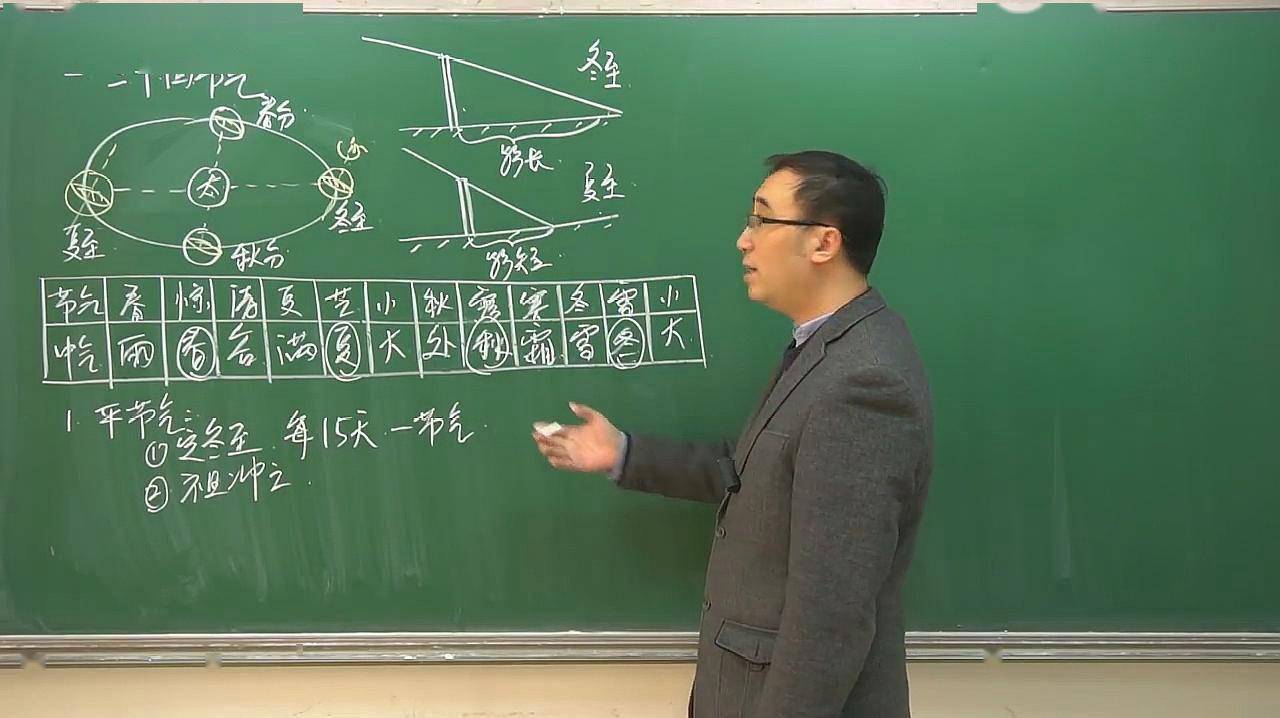 二十四节气
春分
太
夏至
秋分
冬至
冬至
影长
夏至
影短
节气 春 惊 清 夏 芒 小 秋 露 寒 冬 雪 小
中气 雨 春 谷 满 夏 大 处 秋 霜 雪 冬 大
1. 平节气:
① 定冬至 每15天一节气
② 不且冲之